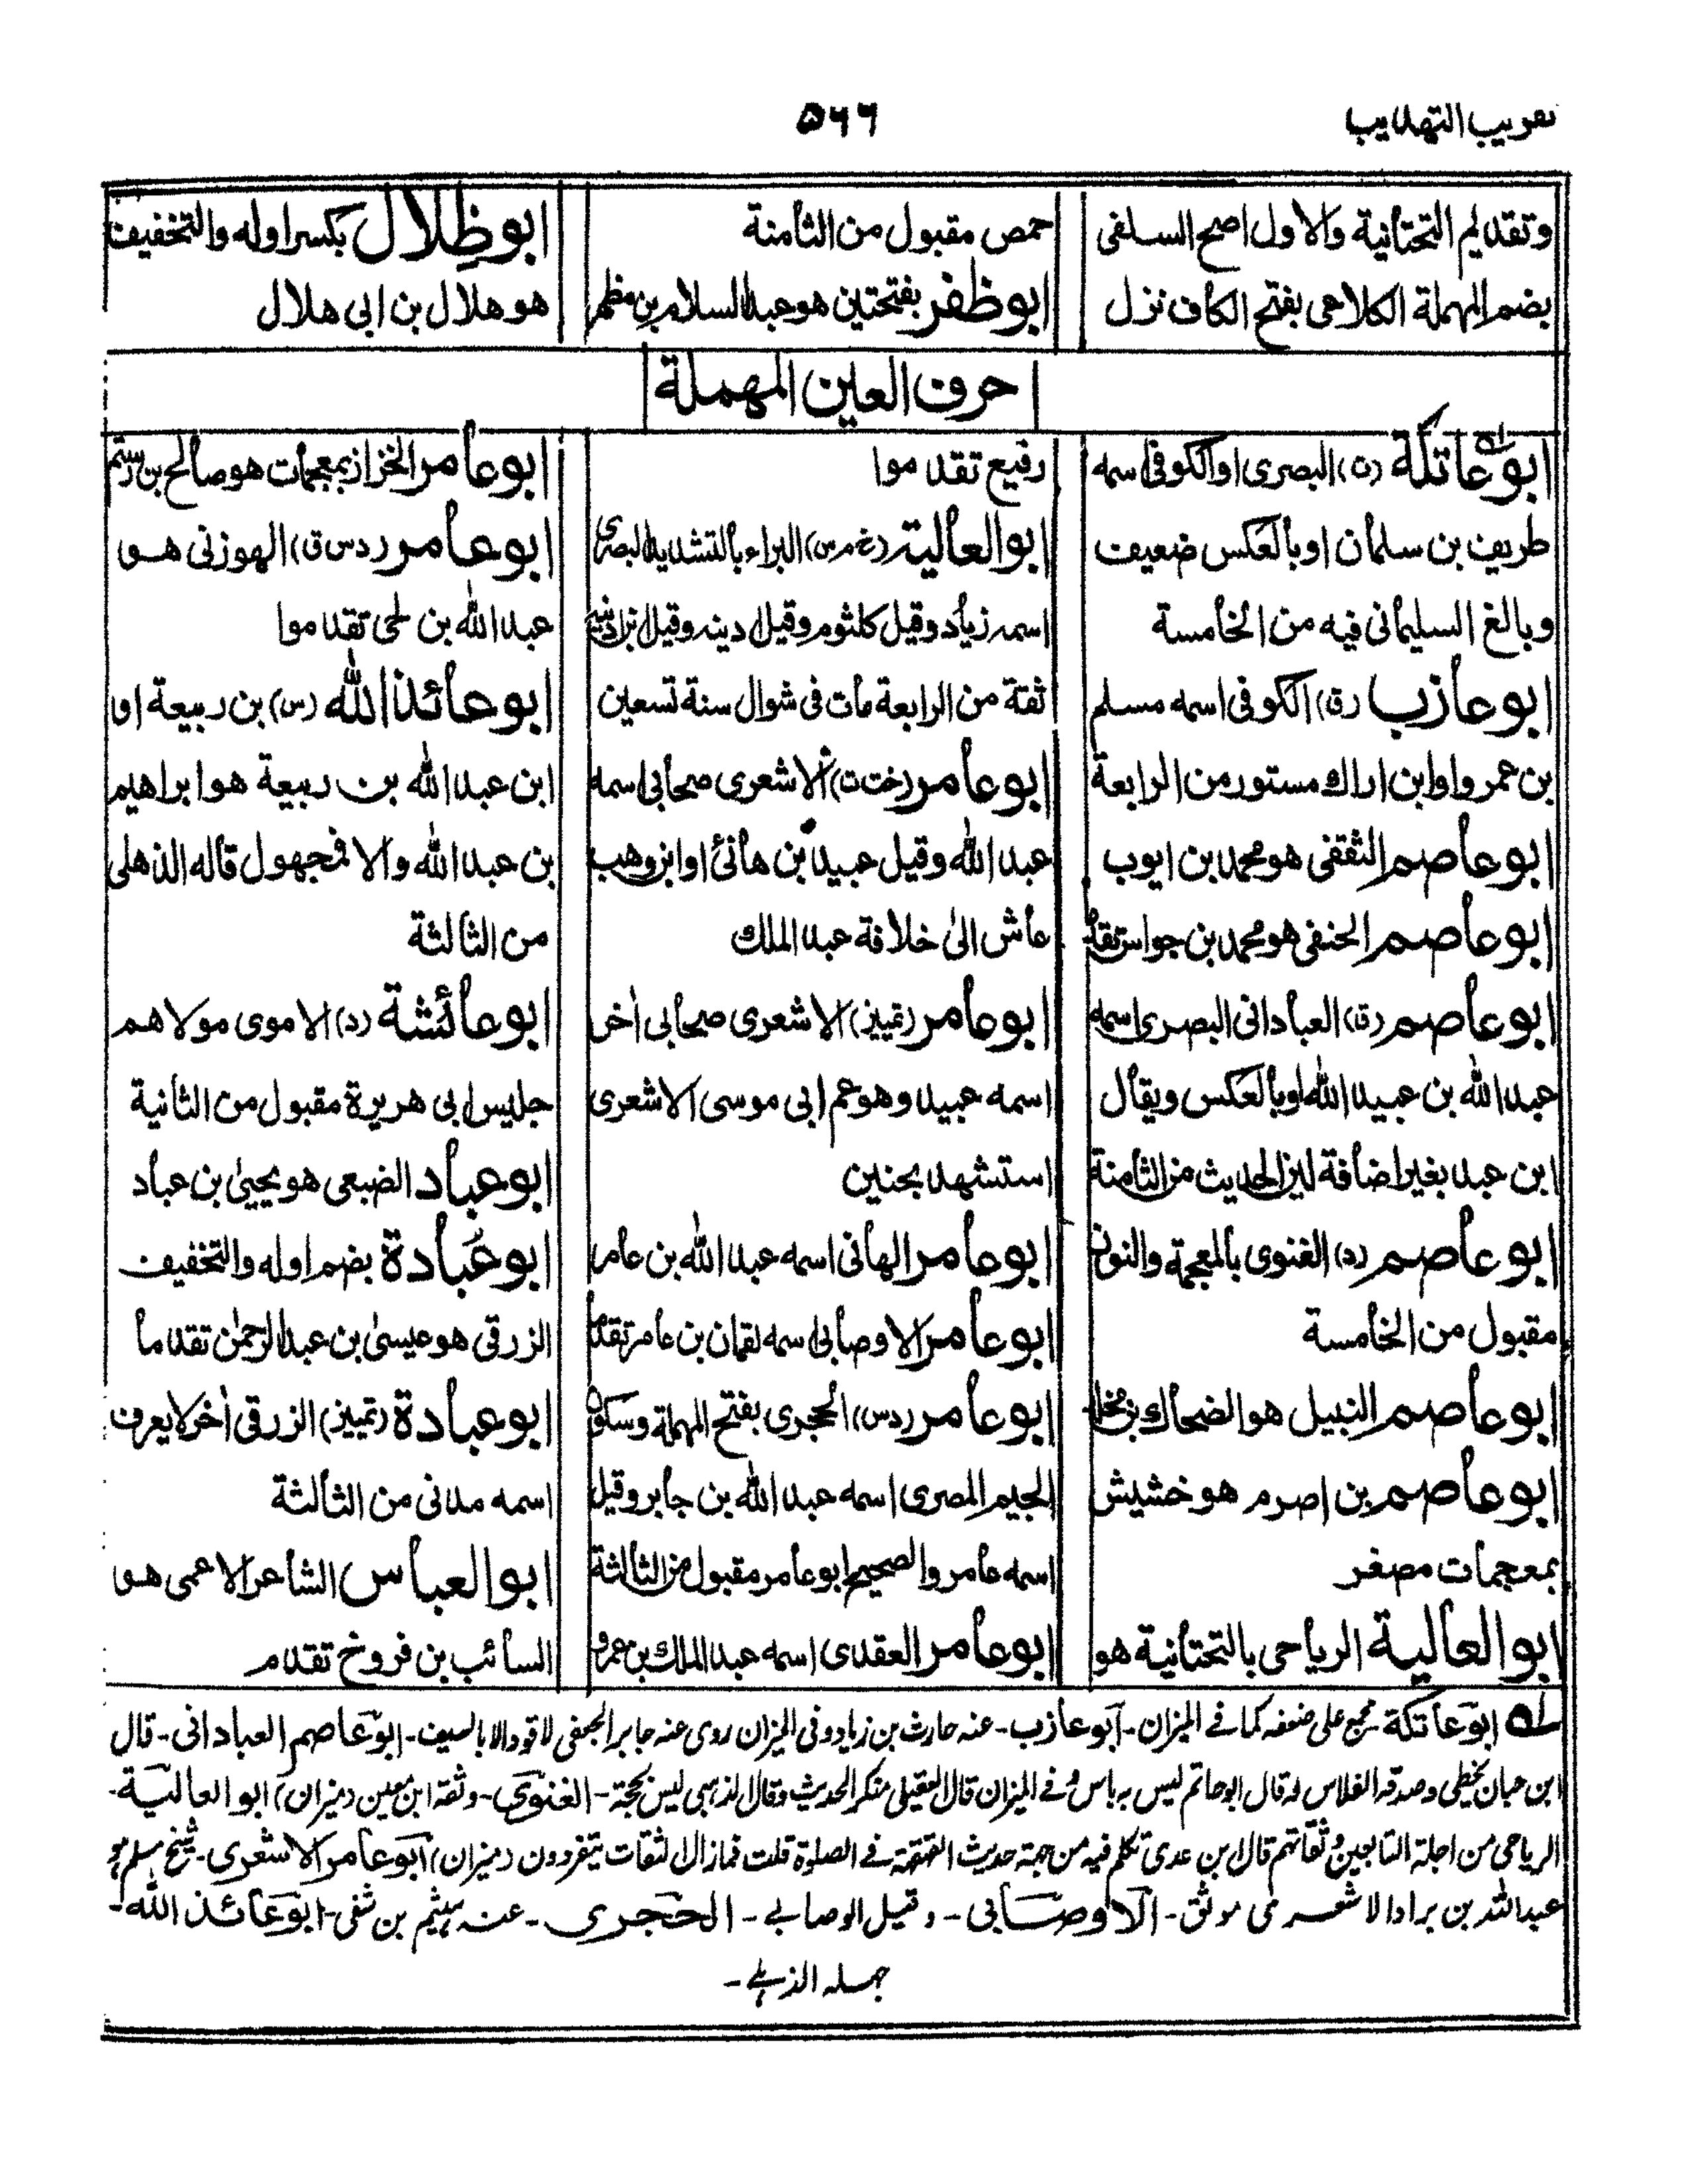 تقريب التهذيب
۵۶۶
وتقديم التحتانية والاول اصح السلفى
بضم المهملة الكلاعى بفتح الكاف نزل
حمص مقبول من الثامنة
ابو ظفر بفتحتين هو عبد السلام بن مطهر
ابو ظِلال بكسر اوله والتخفيف
هو هلال بن ابى هلال
حرف العين المهملة
ابو عاتكة (ت) البصرى او الكوفى اسمه
طريف بن سلمان او بالعكس ضعيف
وبالغ السليمانى فيه من الخامسة
ابو عازب (ق) الكوفى اسمه مسلم
بن عمرو او ابن اراك مستور من الرابعة
ابو عاصم الثقفى هو محمد بن ايوب
ابو عاصم الحنفى هو محمد بن جواس تقدما
ابو عاصم (ق) العبادانى البصرى اسمه
عبد الله بن عبيد الله او بالعكس ويقال
ابن عبد بغير اضافة لين الحديث من الثامنة
ابو عاصم (د) الغنوى بالمعجمة والنون
مقبول من الخامسة
ابو عاصم النبيل هو الضحاك بن مخلد
ابو عاصم بن اصرم هو خشيش
بمعجمات مصغر
ابو العالية الرياحى بالتحتانية هو
رفيع تقدموا
ابو العالية (خ م س) البراء بالتشديد البصرى
اسمه زياد وقيل كلثوم وقيل اذينه وقيل ابن اذينه
ثقة من الرابعة مات فى شوال سنة تسعين
ابو عامر (خت ت) الاشعرى صحابى اسمه
عبد الله وقيل عبيد بن هانئ او ابن وهب
عاش الى خلافة عبد الملك
ابو عامر (تمييز) الاشعرى صحابى اخر
اسمه عبيد وهو عم ابى موسى الاشعرى
استشهد بحنين
ابو عامر الهانى اسمه عبد الله بن عامر
ابو عامر الاوصابى اسمه لقمان بن عامر تقدما
ابو عامر (د س) الحجرى بفتح المهملة وسكون
الجيم المصرى اسمه عبد الله بن جابر وقيل
اسمه عامر والصحيح ابو عامر مقبول من الثالثة
ابو عامر العقدى اسمه عبد الملك بن عمرو
ابو عامر الخزاز بمعجمات هو صالح بن رستم
ابو عامر (د س ق) الهوزنى هو
عبد الله بن لحى تقدموا
ابو عائذ الله (س) بن ربيعة او
ابن عبد الله بن ربيعة هو ابراهيم
بن عبد الله والا فمجهول قاله الذهلى
من الثالثة
ابو عائشة (د) الاموى مولاهم
جليس ابى هريرة مقبول من الثانية
ابو عباد الضبعى هو يحيىٰ بن عباد
ابو عُبادة بضم اوله والتخفيف
الزرقى هو عيسىٰ بن عبد الرحمٰن تقدما
ابو عبادة (تمييز) الزرقى اٰخر لا يعرف
اسمه مدنى من الثالثة
ابو العباس الشاعر الاعمى هو
السائب بن فروخ تقدم
له ابو عاتكة مجمع على ضعفه كما فى الميزان - ابو عازب - عنه حارث بن زياد وفى الميزان روى عنه جابر الجعفى لا قود الا بالسيف - ابو عاصم العبادانى - قال
ابن حبان يخطى وصدقه الفلاس قال ابو حاتم ليس به باس وفى الميزان قال العقيلى منكر الحديث وقال الذهبى ليس بحجة - الغنوى - وثقه ابن معين (ميزان) ابو العالية -
الرياحى من اجلة التابعين وثقاتهم قال ابن عدى تكلم فيه من جهة حديث القهقهة فى الصلوة قلت فما زال الثقات يتفردون (ميزان) ابو عامر الاشعرى - شيخ مسلم هو
عبد الله بن براد الاشعرى موثق - الاوصابى - وقيل الوصابى - الحجرى - عنه هيثم بن شفى - ابو عائذ الله -
جهله الذهلى -